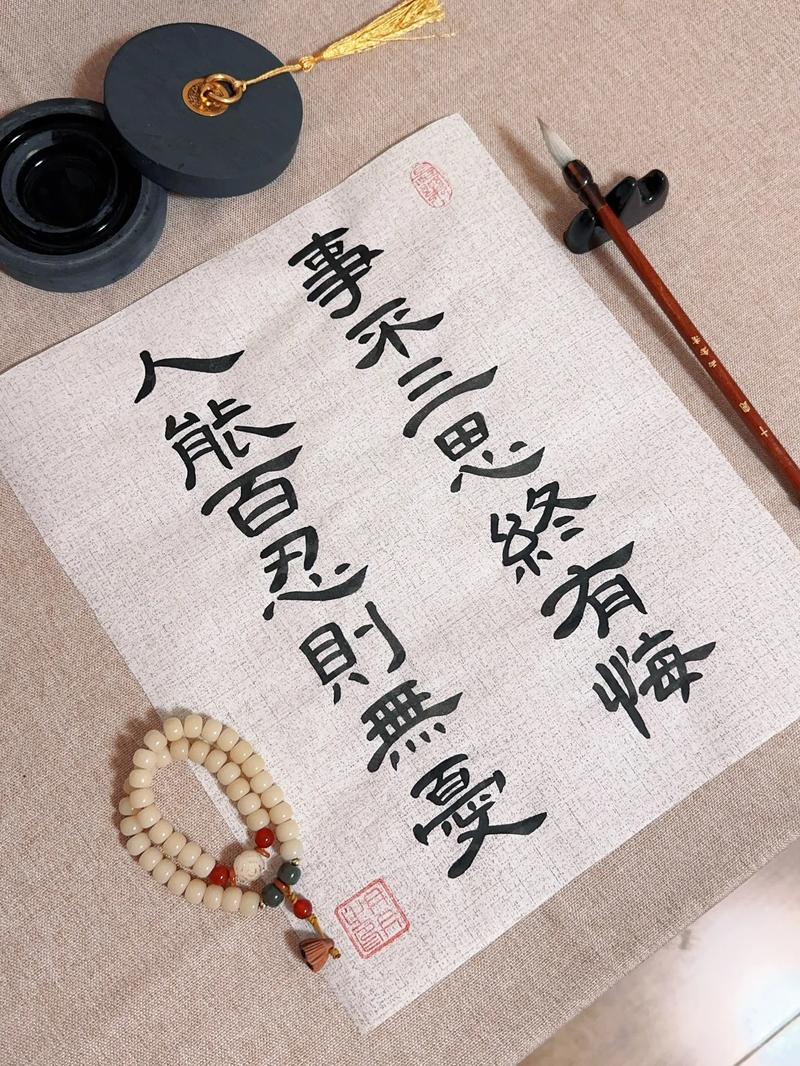 事不三思終有悔
人能百忍則無憂